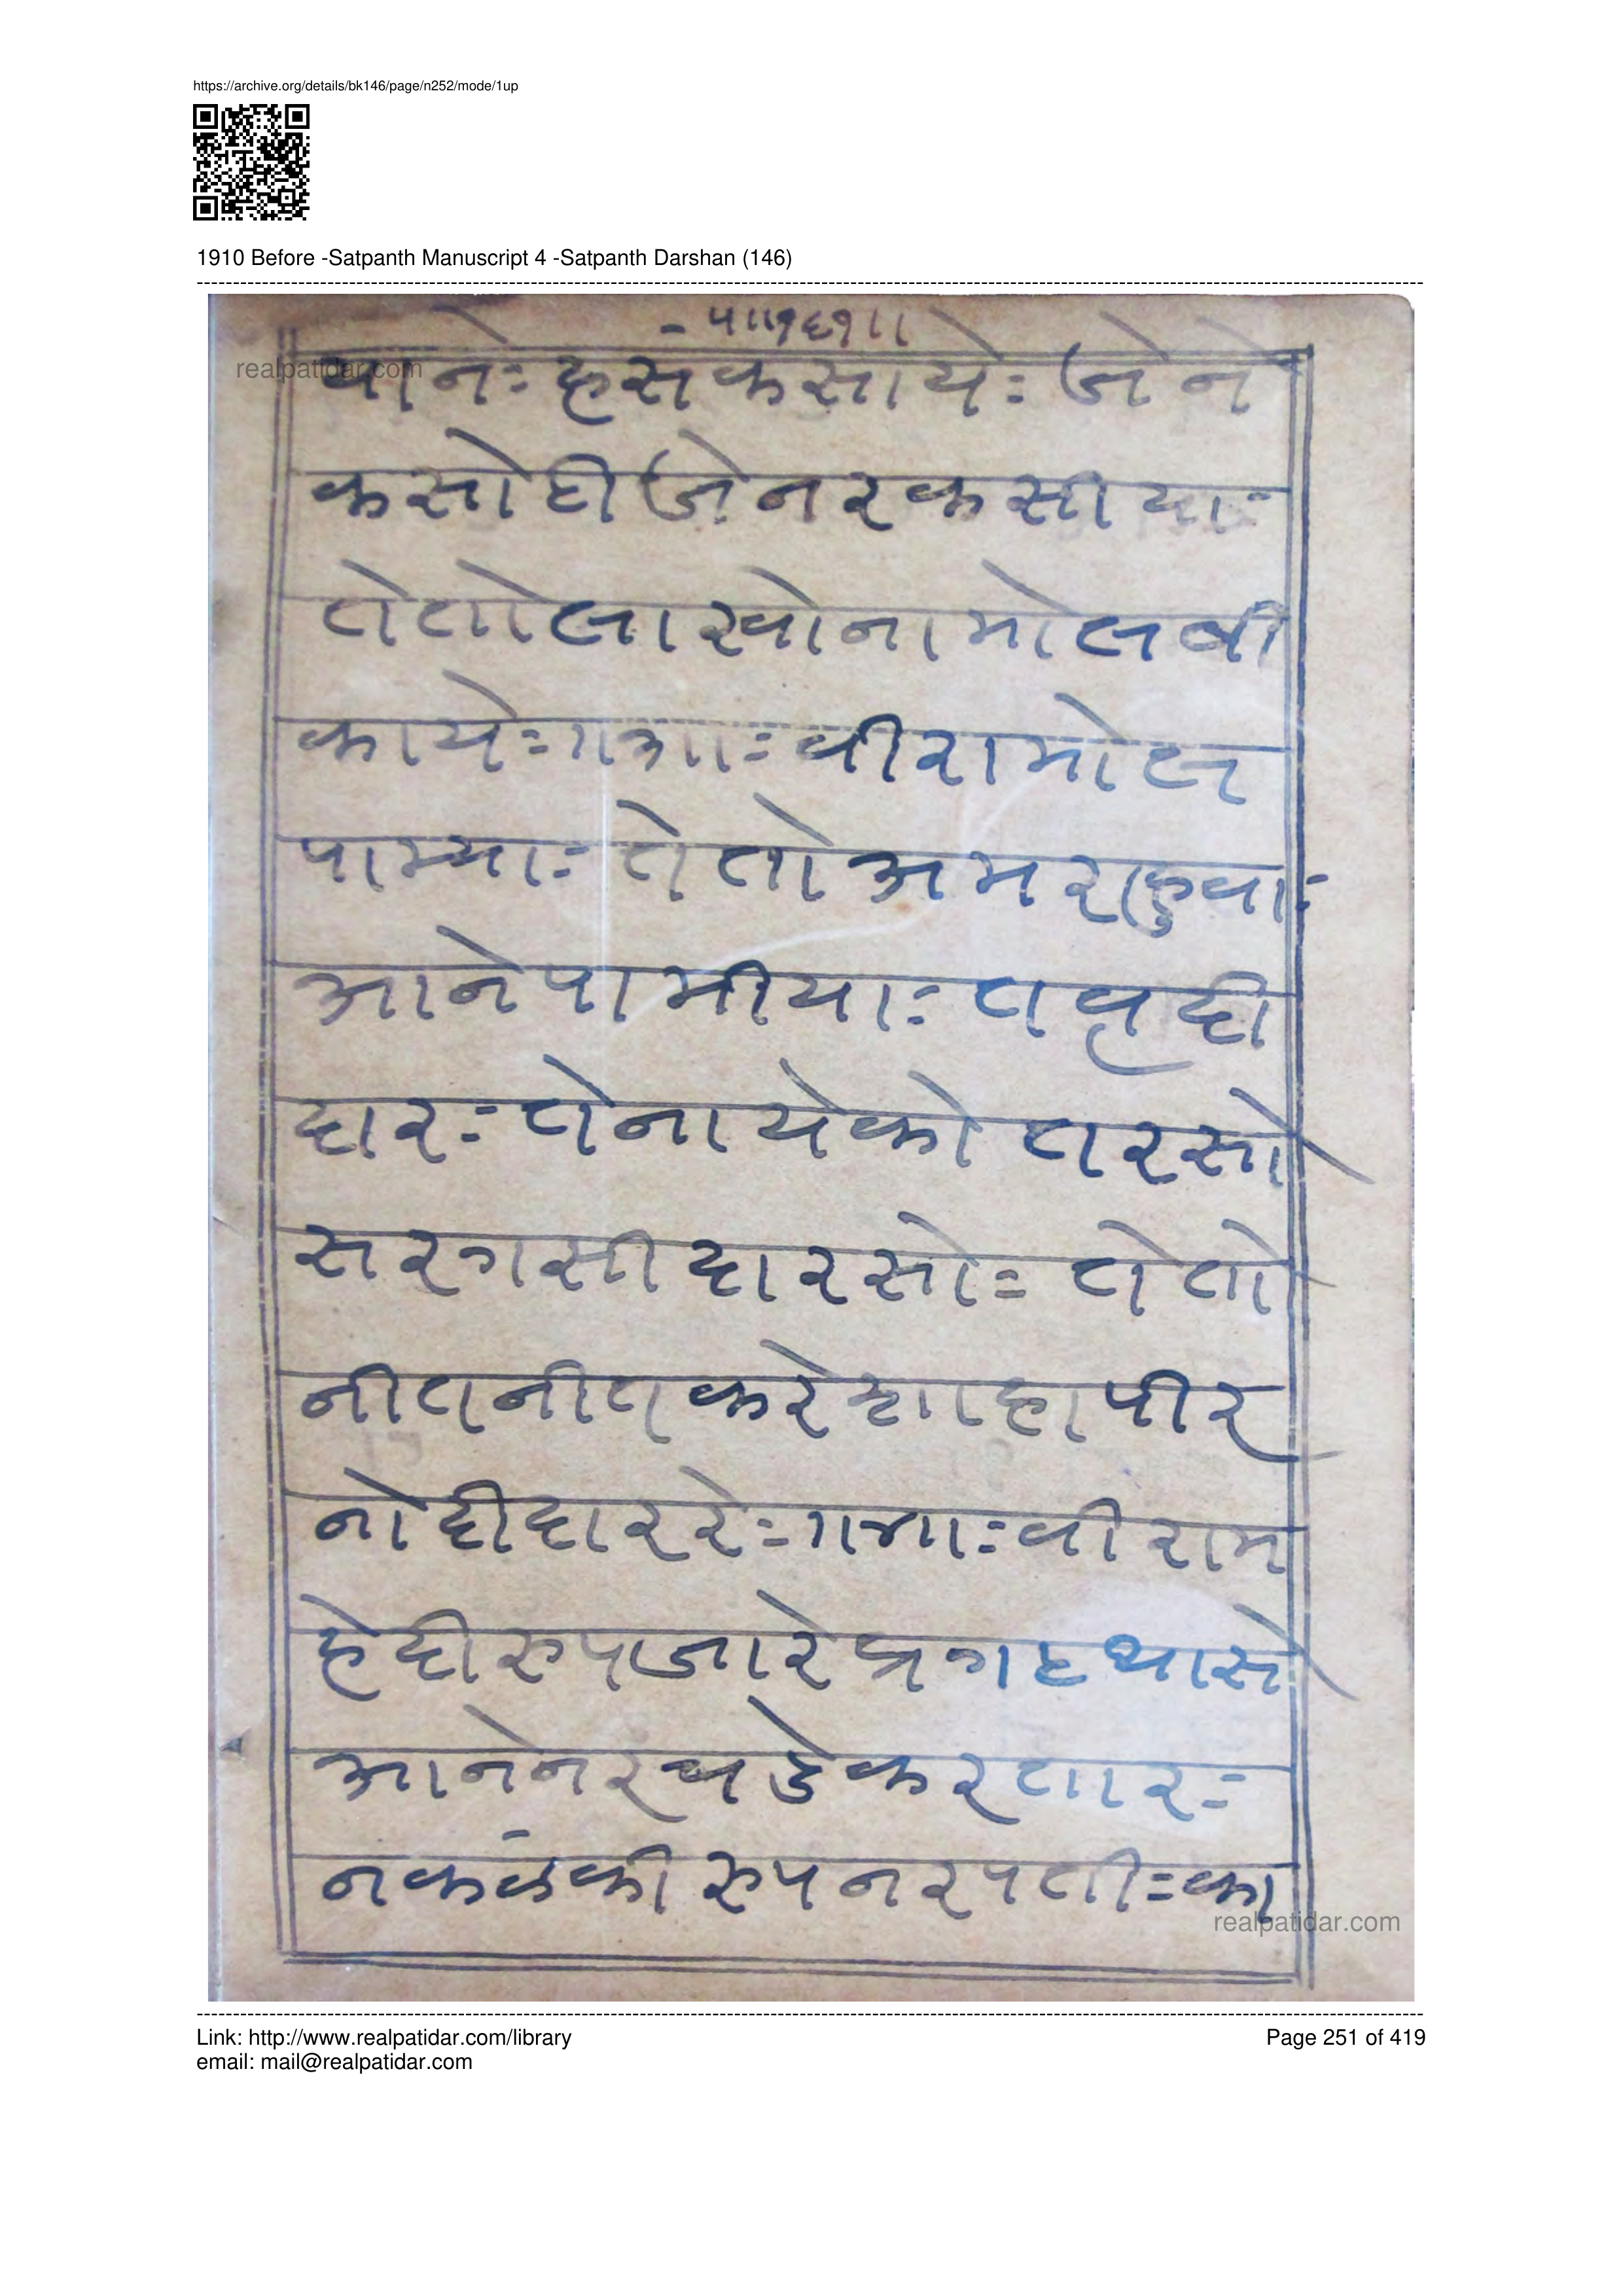 https://archive.org/details/bk146/page/n252/mode/1up
1910 Before -Satpanth Manuscript 4 -Satpanth Darshan (146)
५॥१६१॥
realpatidar.com
याने= हसंकसाये= जेने
कसोटी जे नर कसीया=
तेतो लाखोना मोलवी
काये=॥३॥= वीरा मोल
पाम्या= तेतो अमराहुवा=
आने पामीया= तावृदी
दार= तेना येकोतारसो
सरगसीदारसो= तेतो
नीतनीत करे शाहापीर
नो दीदार रे=॥४॥= वीरा म
हेदी रुप जारे प्रगट थासे
आने नर चडे करतार=
नकलंकी रुप नरपती= का
realpatidar.com
Link: http://www.realpatidar.com/library
Page 251 of 419
email: mail@realpatidar.com